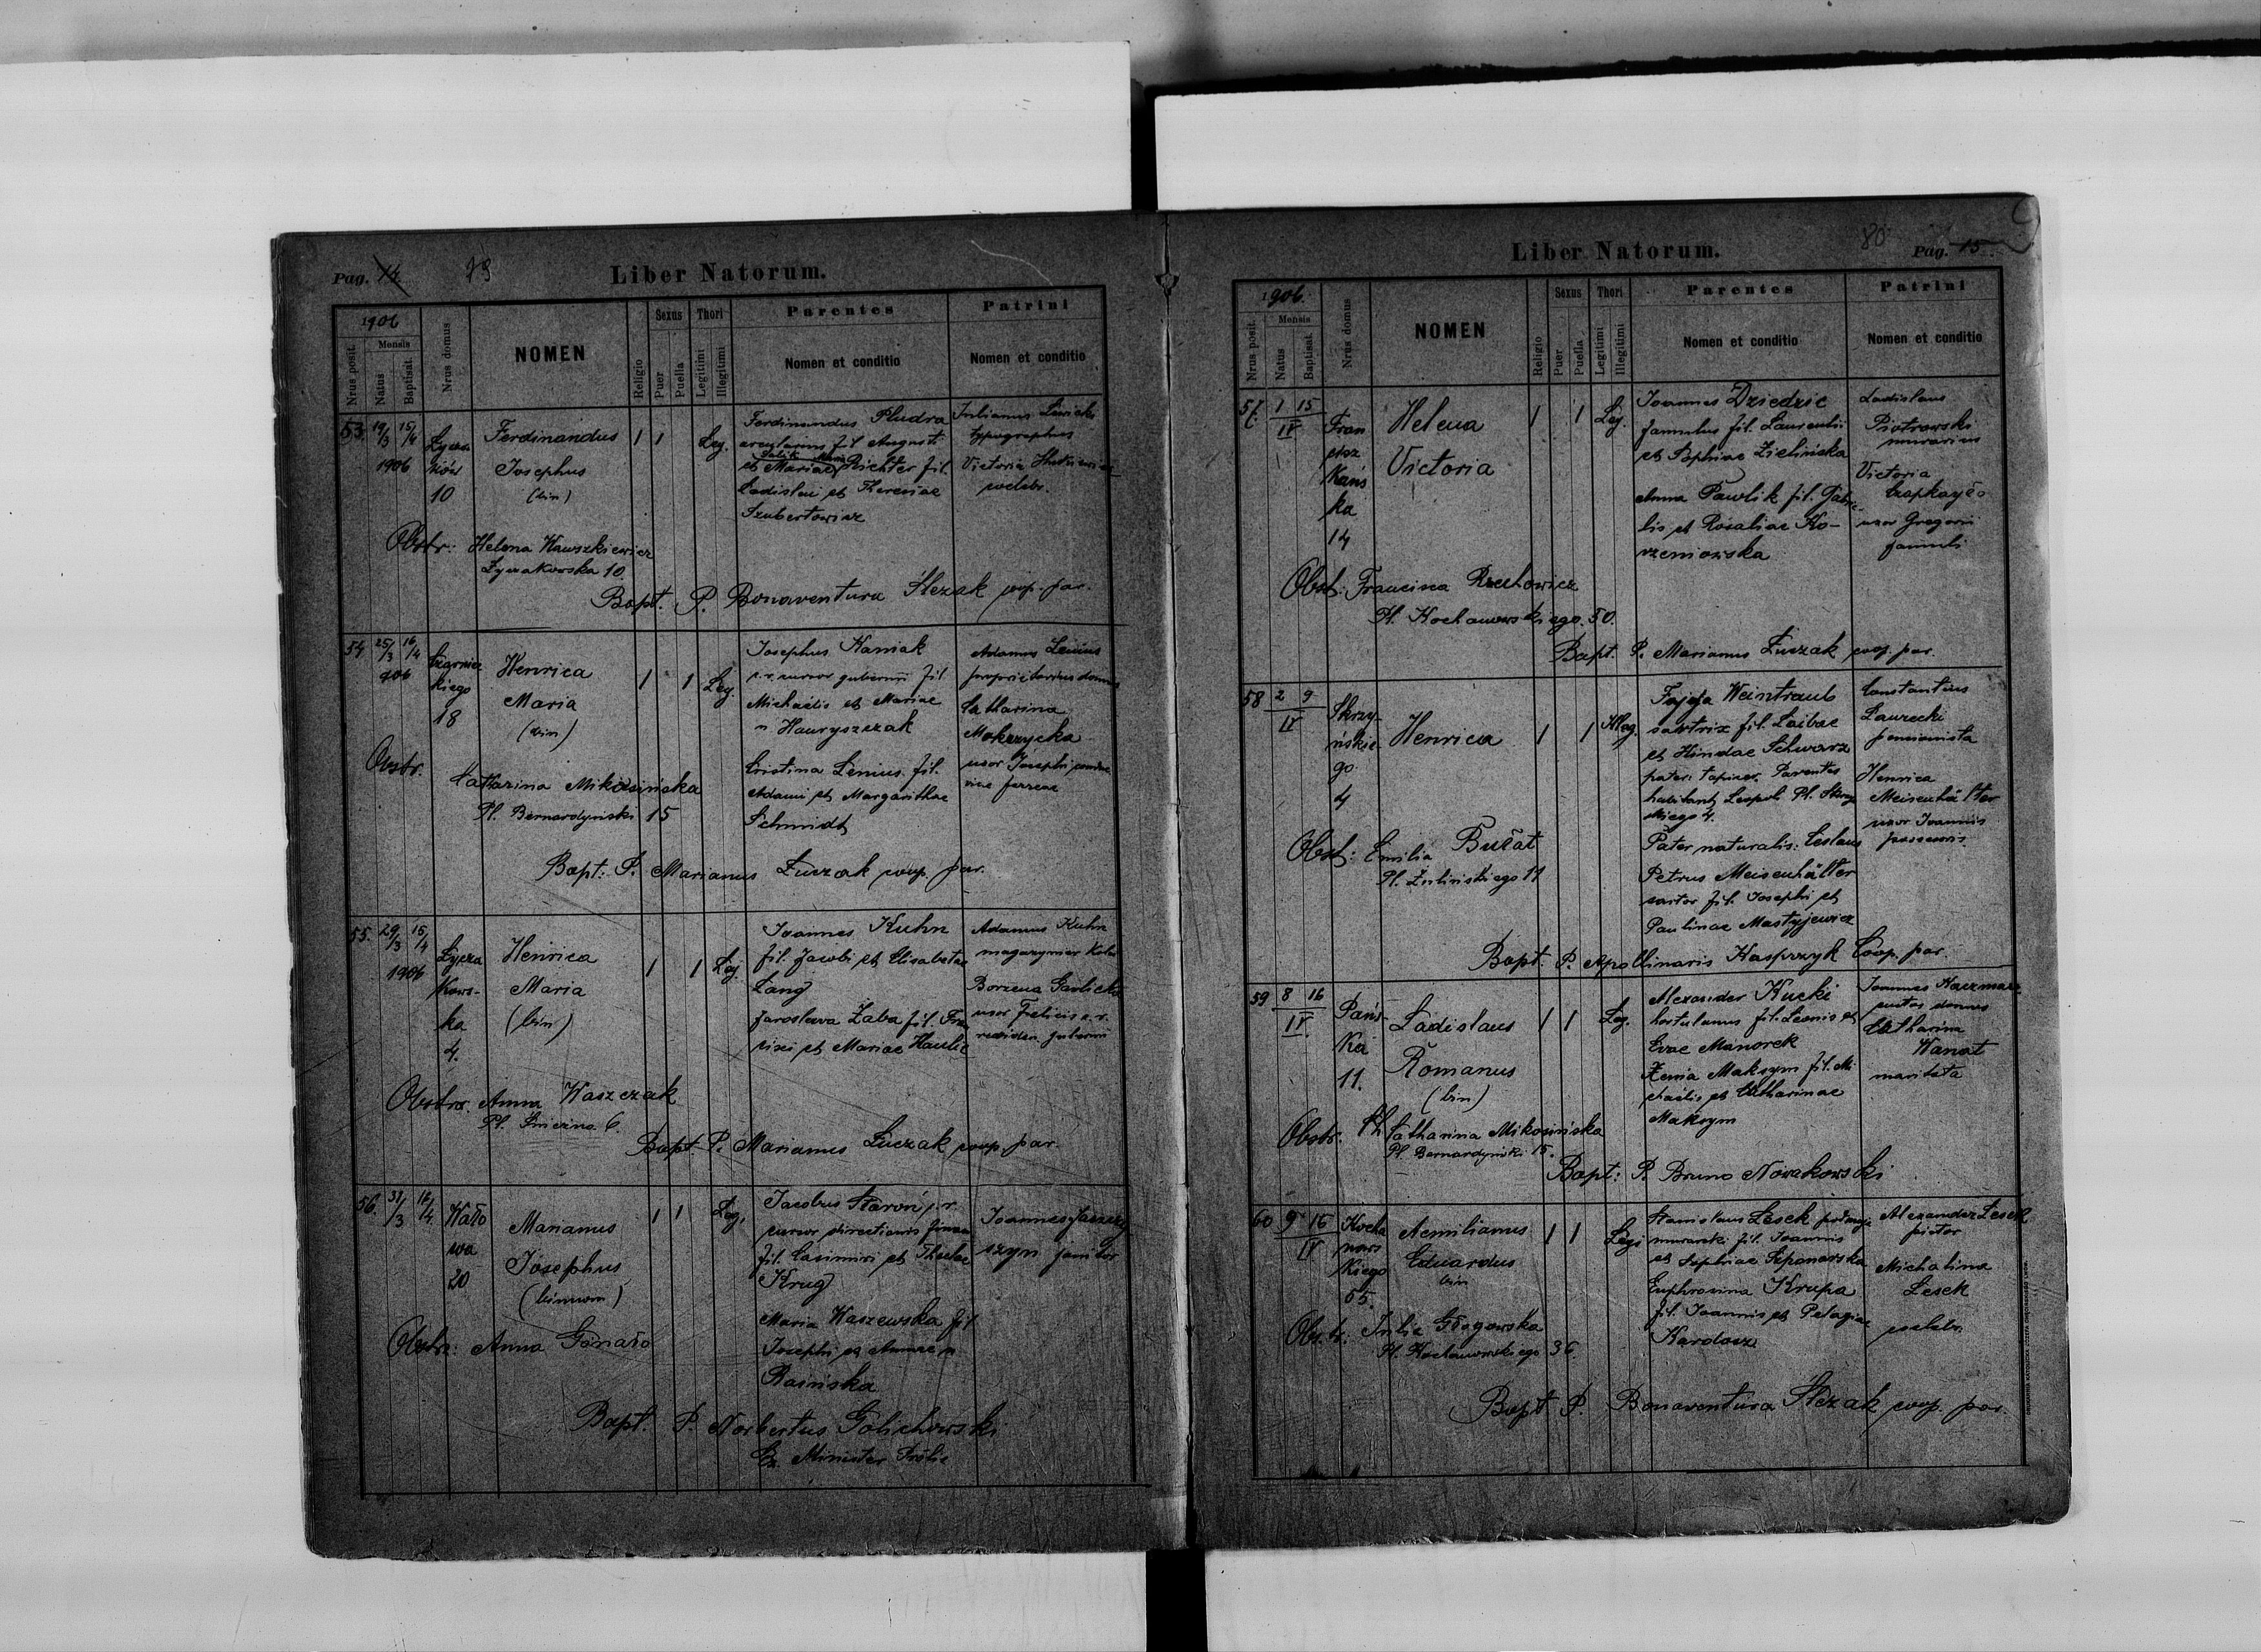 Pag. 14 79 Liber Natorum.
1906
Mensis
Nrus posit.
Natus
Baptisat.
Nrus domus
NOMEN
Religio
Sexus
Puer
Puella
Thori
Legitimi
Illegitimi
Parentes
Nomen et conditio
Patrini
Nomen et conditio
53. 19/3 15/4
1906
10
Ferdinandus
Josephus
(bin)
1 1 Leg.
Ferdinandus Pludra
fil. August
et Mariae Richter fil.
Ladislai et Theresiae
Szubertowicz
Julianus
typographus
Victoria
coelebs.
Obstr: Helena Wawszkiewicz
Łyczakowska 10.
Bapt. P. Bonaventura Ślezak coop. par.
54 25/3 16/4
906
Czarniec
kiego
18
Henrica
Maria
(bin)
1 1 Leg.
Josephus Kaniak
c.r. cursor gubernii fil
Michaelis et Mariae
n Hawryszczak
Cristina Lenius fil.
Adami et Margarithae
Schmidt
Adamus Lenius
proprietarius domus
Catharina
Mokrzycka
uxor Josephi
viae ferreae
Obstr.
Catharina Mikosińska
Pl. Bernardyński 15
Bapt: P. Marianus Łuczak coop. par.
55. 29/3 15/4
1906
Łycza
kows-
ka
4.
Henrica
Maria
(bin)
1 1 Leg.
Joannes Kuhn
fil. Jacobi et Elisabetae
Lang
Jaroslawa Żaba fil. Fran
cisci et Mariae Hawlic
Adamus Kuhn
magazynier
Borzena Gawlicka
uxor Felicis c.r.
gubernii
Obstr. Anna Waszczak
Bapt P. Marianus Łuczak coop. par.
56. 31/3 16/4
Wało
wa
20
Marianus
Josephus
(binum)
1 1 Leg.
Jacobus c.r.
cursor directionis
fil. Casimiri et Theclae
Krug
Maria Waszewska fil
Josephi et Annae n
Rasińska
Joannes
szyn janitor
Obstr: Anna
Bapt. P. Norbertus Golichowski
Ex. Minister
Liber Natorum. 80 Pag. 15
1906.
Mensis
Nrus posit.
Natus
Baptisat.
Nrus domus
NOMEN
Religio
Sexus
Puer
Puella
Thori
Legitimi
Illegitimi
Parentes
Nomen et conditio
Patrini
Nomen et conditio
57. 1 15
IV
Fran
cisz
kańs
ka
14
Helena
Victoria
1 1 Leg.
Joannes Dziedzic
famulus fil. Laurentii
et Sophiae Zielińska
Anna Pawlik fil. Gabrie
lis et Rosaliae Ko-
rzeniowska
Ladislaus
Piotrowski
murarius
Victoria
uxor Gregorii
famuli
Obst: Francisca Rzechowicz
Pl. Kochanowskiego. 50.
Bapt. P. Marianus Łuczak coop. par.
58 2 9
IV
Skrzy-
ńskie
go
4
Henrica
1 1 Illeg.
Fajga Weintraub
sartrix fil. Laibae
et Hindae Schwarz
Parentes
habitant Leopoli Pl. Skrzy
ńkiego 4.
Pater naturalis: Ceslaus
Petrus Meisenhälter
sartor fil. Josephi et
Paulinae Mastyjewicz
Constantius
Laurecki
pensionista
Henrica
Meisenhälter
uxor Joannis
Obst: Emilia Burat
Pl. Zulińskiego 11
Bapt: P. Apollinaris Kasprzyk Coop. par.
59 8 16
IV.
Pańs-
ka
11.
Ladislaus
Romanus
(bin)
1 1 Leg.
Alexander Kucki
hortulanus fil. Leonis et
Evae Manorek
Xenia Maksym fil. Mi
chaelis et Catharinae
Maksym
Joannes Kaczmar
custos domus
Catharina
Wanat
maritata
Obstr. Catharina Mikosińska
Pl. Bernardyński 15.
Bapt: P. Bruno Nowakowski
60 9 16
IV
Kocha
nows
kiego
65.
Aemilianus
Eduardus
bin
1 1 Legi
Stanislaus Lesek
murarski fil. Joannis
et Sophiae Szponarska
Euphrosina Krupa
fil. Joannis et Pelagiae
Kardasz
Alexander Lesek
pictor
Michalina
Lesek
coelebs.
Obstr: Julia Głogowska
Pl. Kochanowskiego 36.
Bapt P. Bonaventura Ślezak coop. par.